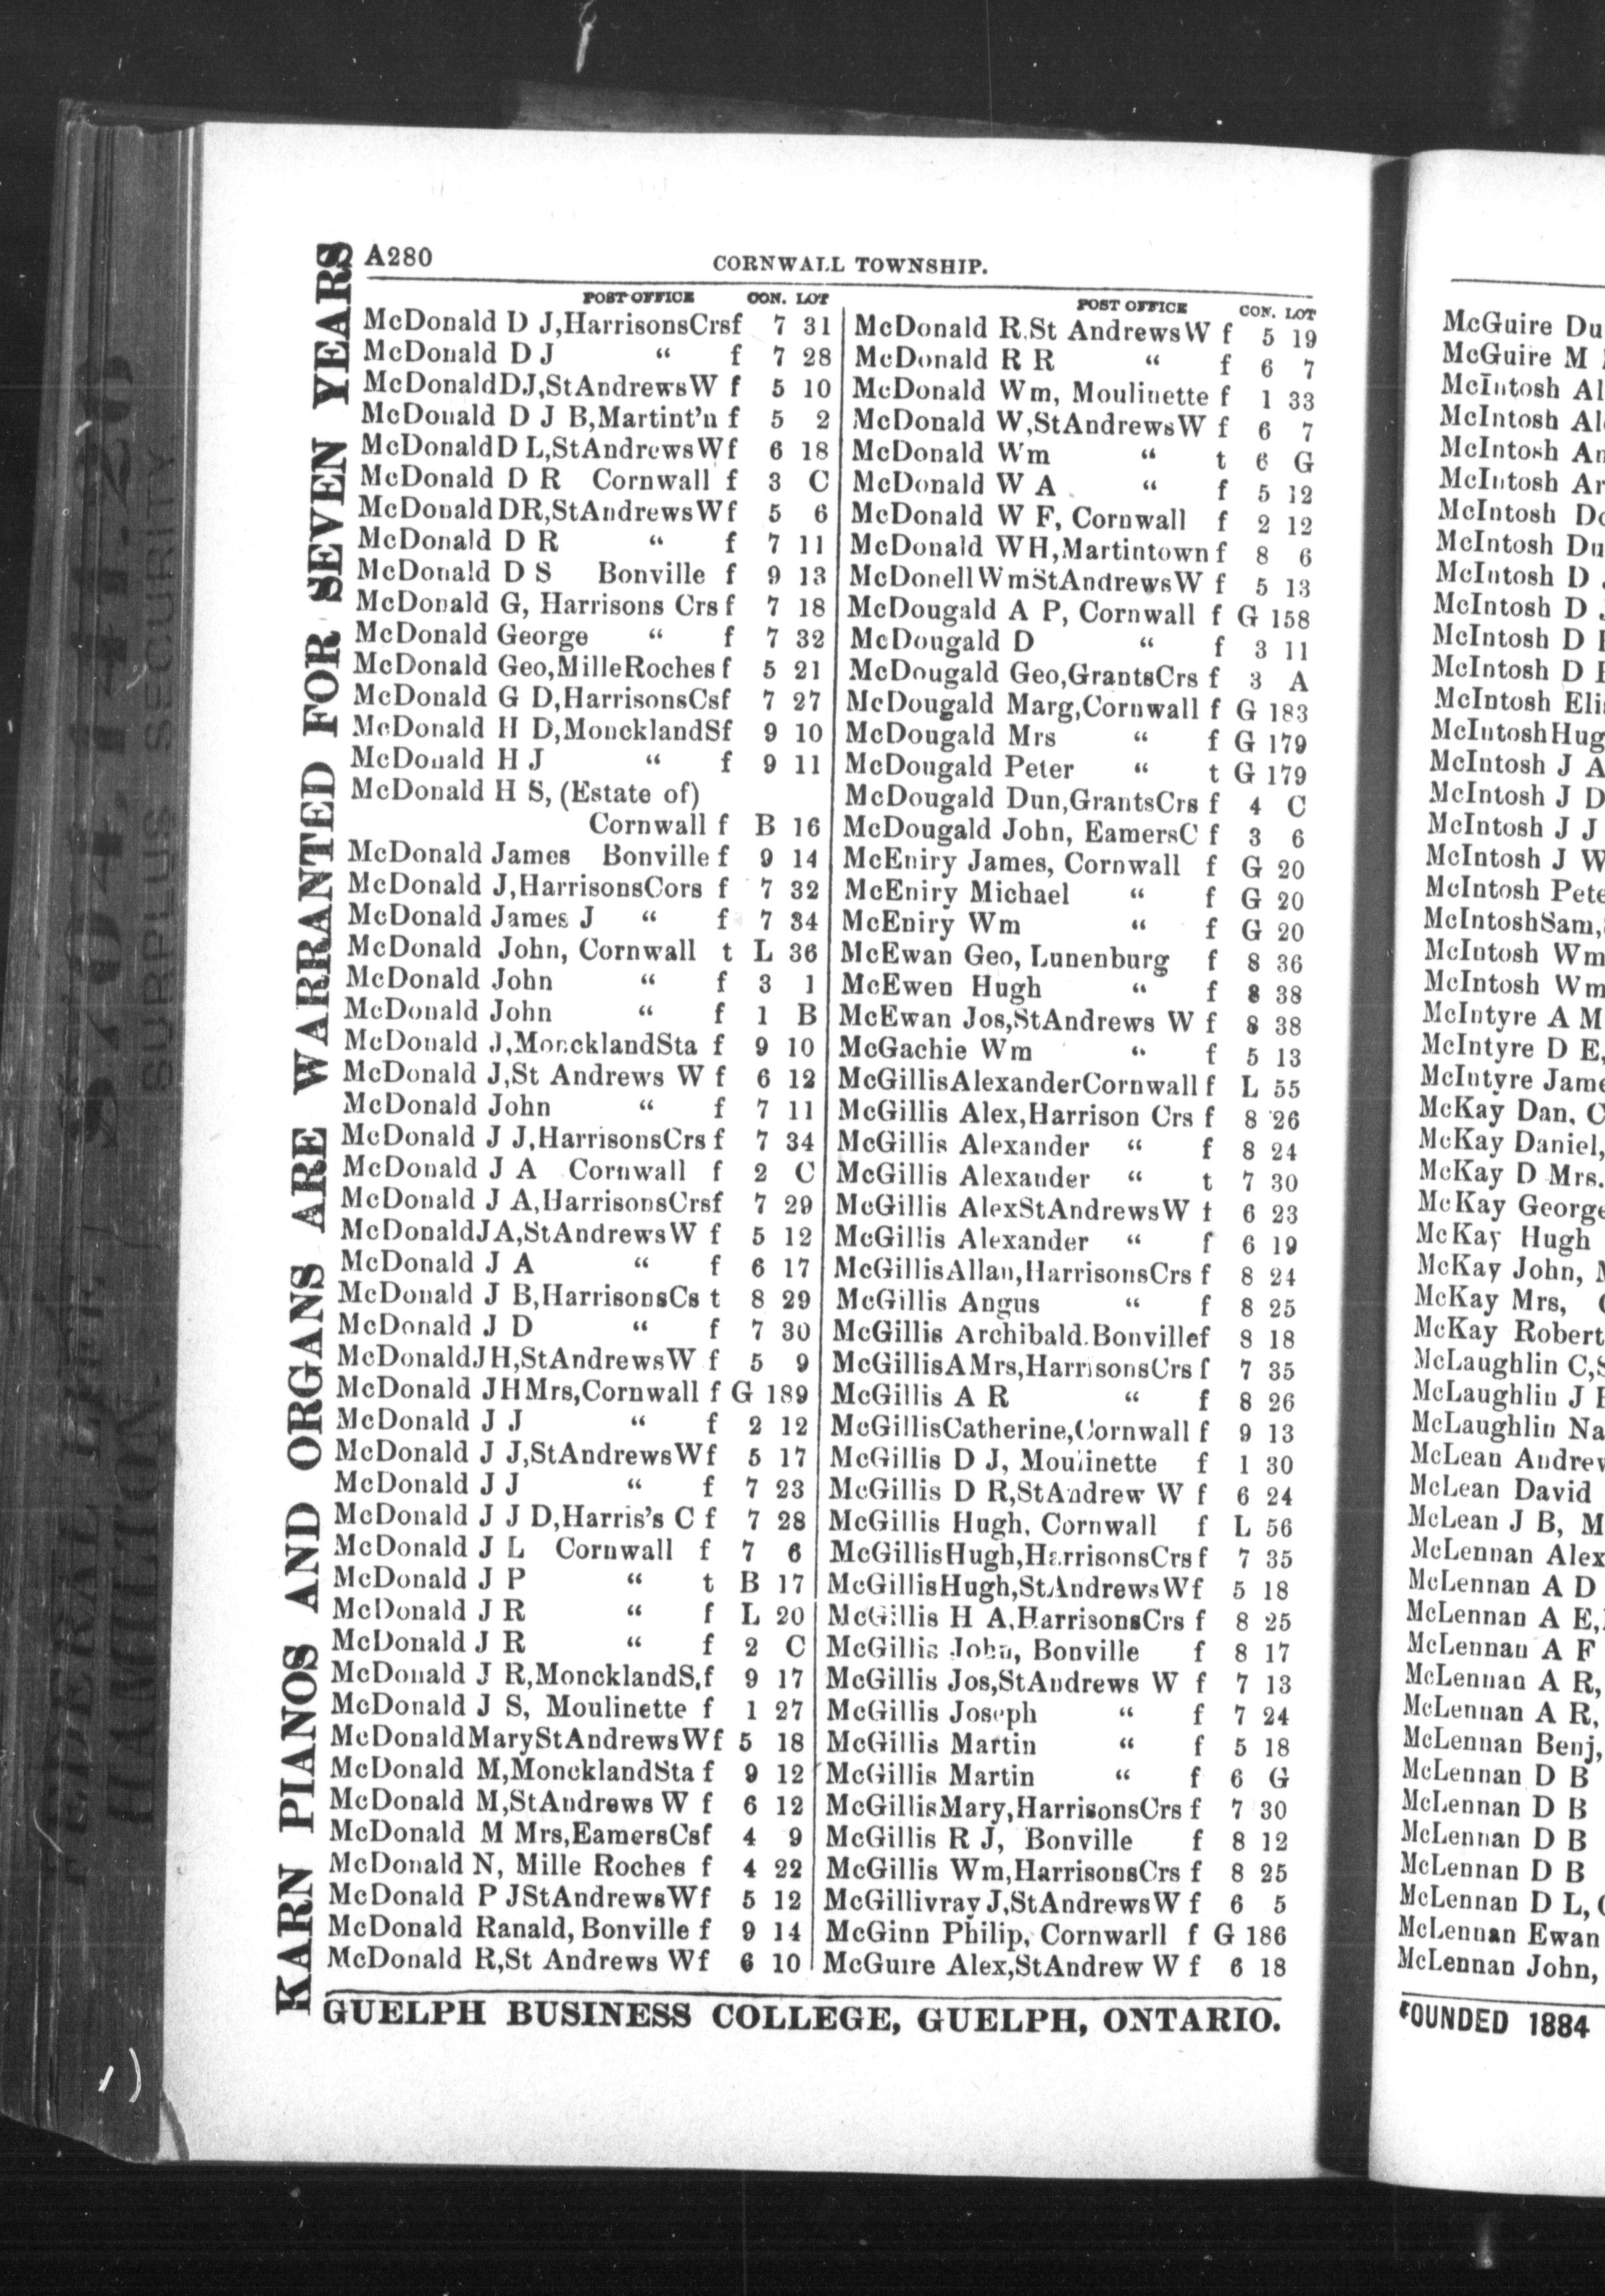 A280
CORNWALL TOWNSHIP.
POST OFFICE CON. LOT
McDonald D J,HarrisonsCrsf 7 31
McDonald D J “ f 7 28
McDonaldDJ,StAndrewsW f 5 10
McDonald D J B,Martint'n f 5 2
McDonaldD L,StAndrewsWf 6 18
McDonald D R Cornwall f 3 C
McDonaldDR,StAndrewsWf 5 6
McDonald D R “ f 7 11
McDonald D S Bonville f 9 13
McDonald G, Harrisons Crs f 7 18
McDonald George “ f 7 32
McDonald Geo,MilleRoches f 5 21
McDonald G D,HarrisonsCsf 7 27
McDonald H D,MoncklandSf 9 10
McDonald H J “ f 9 11
McDonald H S, (Estate of)
Cornwall f B 16
McDonald James Bonville f 9 14
McDonald J,HarrisonsCors f 7 32
McDonald James J “ f 7 34
McDonald John, Cornwall t L 36
McDonald John “ f 3 1
McDonald John “ f 1 B
McDonald J,MoncklandSta f 9 10
McDonald J,St Andrews W f 6 12
McDonald John “ f 7 11
McDonald J J,HarrisonsCrs f 7 34
McDonald J A Cornwall f 2 C
McDonald J A,HarrisonsCrsf 7 29
McDonaldJA,StAndrewsW f 5 12
McDonald J A “ f 6 17
McDonald J B,HarrisonsCs t 8 29
McDonald J D “ f 7 30
McDonaldJH,StAndrewsW f 5 9
McDonald JHMrs,Cornwall f G 189
McDonald J J “ f 2 12
McDonald J J,StAndrewsWf 5 17
McDonald J J “ f 7 23
McDonald J J D,Harris's C f 7 28
McDonald J L Cornwall f 7 6
McDonald J P “ t B 17
McDonald J R “ f L 20
McDonald J R “ f 2 C
McDonald J R,MoncklandS,f 9 17
McDonald J S, Moulinette f 1 27
McDonaldMaryStAndrewsWf 5 18
McDonald M,MoncklandSta f 9 12
McDonald M,StAndrews W f 6 12
McDonald M Mrs,EamersCsf 4 9
McDonald N, Mille Roches f 4 22
McDonald P JStAndrewsWf 5 12
McDonald Ranald, Bonville f 9 14
McDonald R,St Andrews Wf 6 10
POST OFFICE CON. LOT
McDonald R,St AndrewsW f 5 19
McDonald R R “ f 6 7
McDonald Wm, Moulinette f 1 33
McDonald W,StAndrewsW f 6 7
McDonald Wm “ t 6 G
McDonald W A “ f 5 12
McDonald W F, Cornwall f 2 12
McDonald WH,Martintown f 8 6
McDonellWmStAndrewsW f 5 13
McDougald A P, Cornwall f G 158
McDougald D “ f 3 11
McDougald Geo,GrantsCrs f 3 A
McDougald Marg,Cornwall f G 183
McDougald Mrs “ f G 179
McDougald Peter “ t G 179
McDougald Dun,GrantsCrs f 4 C
McDougald John, EamersC f 3 6
McEniry James, Cornwall f G 20
McEniry Michael “ f G 20
McEniry Wm “ f G 20
McEwan Geo, Lunenburg f 8 36
McEwen Hugh “ f 8 38
McEwan Jos,StAndrews W f 8 38
McGachie Wm “ f 5 13
McGillisAlexanderCornwall f L 55
McGillis Alex,Harrison Crs f 8 26
McGillis Alexander “ f 8 24
McGillis Alexander “ t 7 30
McGillis AlexStAndrewsW t 6 23
McGillis Alexander “ f 6 19
McGillisAllan,HarrisonsCrs f 8 24
McGillis Angus “ f 8 25
McGillis Archibald.Bonvillef 8 18
McGillisAMrs,HarrisonsCrs f 7 35
McGillis A R “ f 8 26
McGillisCatherine,Cornwall f 9 13
McGillis D J, Moulinette f 1 30
McGillis D R,StAndrew W f 6 24
McGillis Hugh, Cornwall f L 56
McGillisHugh,HarrisonsCrs f 7 35
McGillisHugh,StAndrewsWf 5 18
McGillis H A,HarrisonsCrs f 8 25
McGillis John, Bonville f 8 17
McGillis Jos,StAndrews W f 7 13
McGillis Joseph “ f 7 24
McGillis Martin “ f 5 18
McGillis Martin “ f 6 G
McGillisMary,HarrisonsCrs f 7 30
McGillis R J, Bonville f 8 12
McGillis Wm,HarrisonsCrs f 8 25
McGillivray J,StAndrewsW f 6 5
McGinn Philip, Cornwarll f G 186
McGuire Alex,StAndrew W f 6 18
KARN PIANOS AND ORGANS ARE WARRANTED FOR SEVEN YEARS
GUELPH BUSINESS COLLEGE, GUELPH, ONTARIO.
McGuire Du
McGuire M
McIntosh Al
McIntosh Al
McIntosh An
McIntosh Ar
McIntosh Do
McIntosh Du
McIntosh D
McIntosh D
McIntosh D
McIntosh D
McIntosh Eli
McIntoshHug
McIntosh J A
McIntosh J D
McIntosh J J
McIntosh J W
McIntosh Pete
McIntoshSam,
McIntosh Wm
McIntosh Wm
McIntyre A M
McIntyre D E,
McIntyre Jame
McKay Dan, C
McKay Daniel,
McKay D Mrs.
McKay George
McKay Hugh
McKay John,
McKay Mrs,
McKay Robert
McLaughlin C,S
McLaughlin J
McLaughlin Na
McLean Andrew
McLean David
McLean J B, M
McLennan Alex
McLennan A D
McLennan A E,
McLennan A F
McLennan A R,
McLennan A R,
McLennan Benj,
McLennan D B
McLennan D B
McLennan D B
McLennan D B
McLennan D L,
McLennan Ewan
McLennan John,
FOUNDED 1884
FEDERAL LIFE
HAMILTON
SURPLUS SECURITY